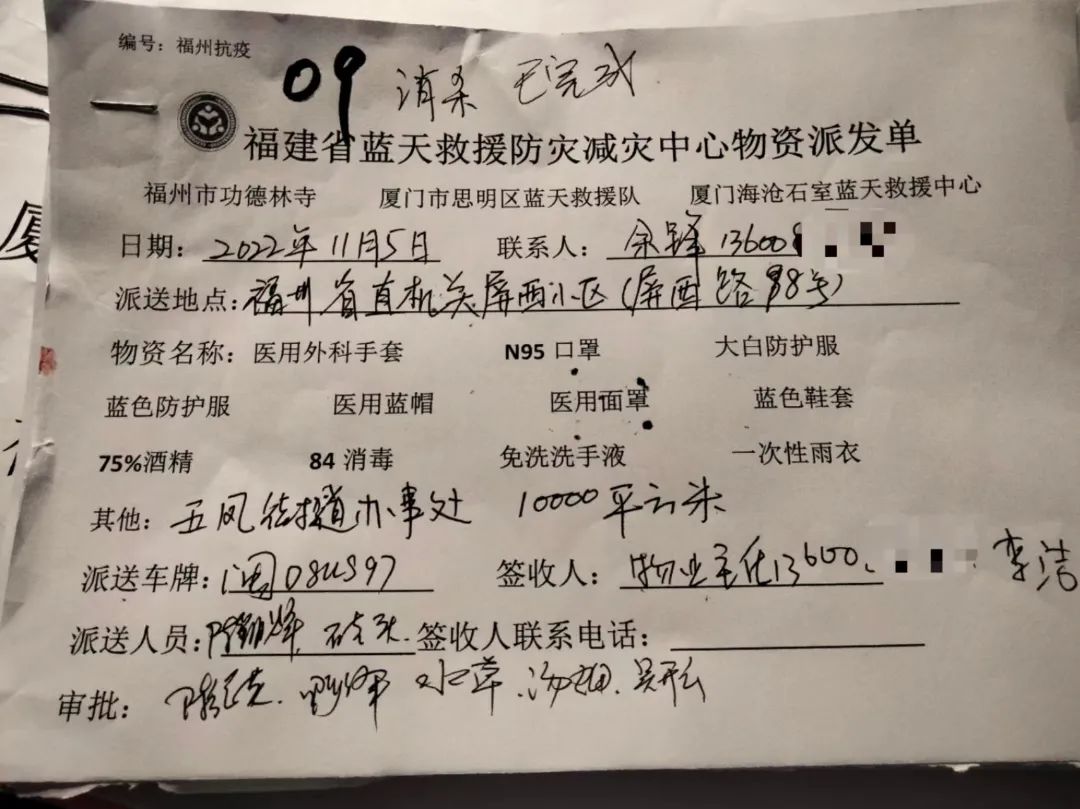 编号：福州抗疫
09 消杀 已完成
福建省蓝天救援防灾减灾中心物资派发单
福州市功德林寺 厦门市思明区蓝天救援队 厦门海沧石室蓝天救援中心
日期：2022年11月5日 联系人：余锋 13600
派送地点：福州省直机关屏西小区（屏西路98号）
物资名称：医用外科手套 N95 口罩 大白防护服
蓝色防护服 医用蓝帽 医用面罩 蓝色鞋套
75%酒精 84 消毒 免洗洗手液 一次性雨衣
其他：五凤街道办事处 10000平方米
派送车牌：闽 签收人：物业主任13600 李洁
派送人员： 签收人联系电话：
审批： 水草